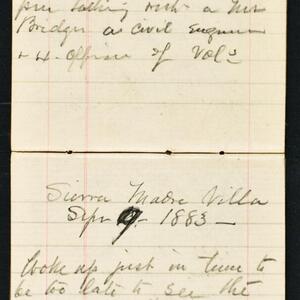 talking with a Mr
Bridger as civil Engineer
of Vols
Sierra Madre Villa
Sepr 9 1883 —
woke up just in time to
be too late to see the